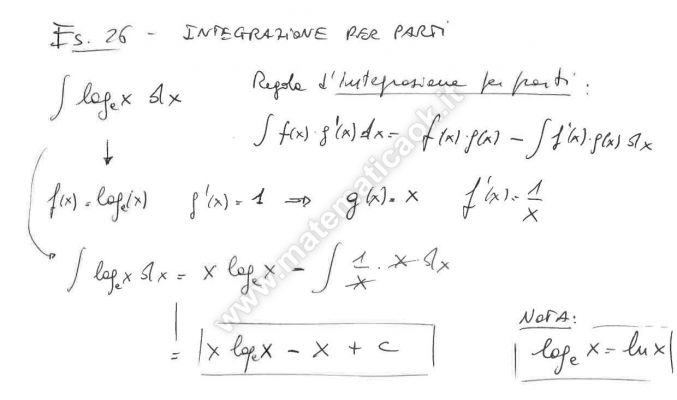 Es. 26 - INTEGRAZIONE PER PARTI
∫ logₑx dx
Regola d'integrazione per parti:
∫ f(x)·g'(x)dx = f(x)·g(x) - ∫ f'(x)·g(x) dx
↓
f(x) = logₑ(x) g'(x) = 1 ⇒ g(x) = x f'(x) = 1/x
∫ logₑx dx = x logₑx - ∫ 1/x · x dx
= x logₑx - x + c
NOTA:
logₑ x = ln x
www.matematicaok.it